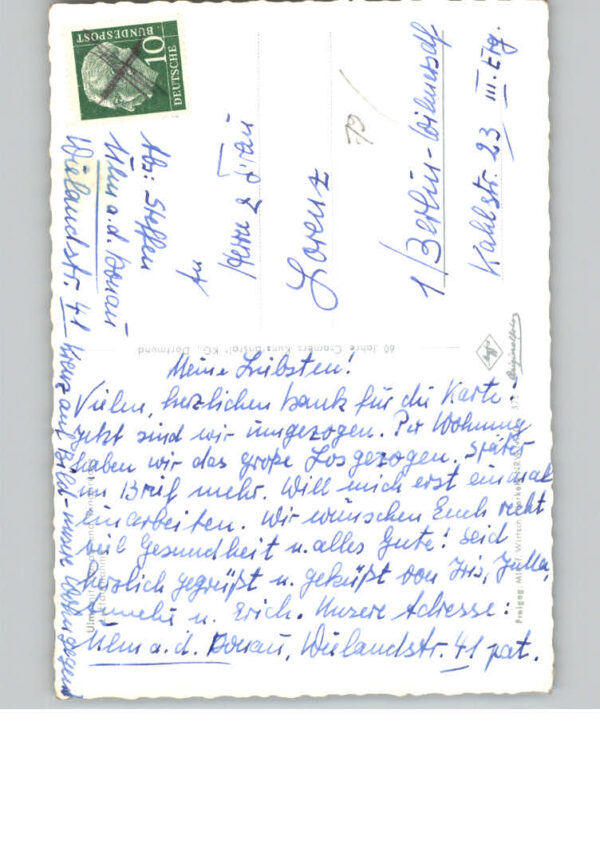 DEUTSCHE
BUNDESPOST
10
Abs: Steffen
Ulm a.d. Donau
Wielandstr. 41
An
Herrn & Frau
Lorenz
79
1/Berlin-Wilmersdf
Kahlstr. 23 III. Etg.
60 Jahre Cramers Kunstanstalt KG., Dortmund
Agfa
Originalfoto
Meine Liebsten!
Vielen, herzlichen Dank für die Karte -
jetzt sind wir umgezogen. Per Wohnung
haben wir das große Los gezogen. Später
im Brief mehr. Will mich erst einmal
einarbeiten. Wir wünschen Euch recht
viel Gesundheit u. alles Gute! Seid
herzlich gegrüßt u. geküßt von Iris, Julla,
u. Erich. Unsere Adresse:
Ulm a.d. Donau, Wielandstr. 41 pat.
Kreuz auf Bild - unsere Wohngegend
Ulm
Freigeg.